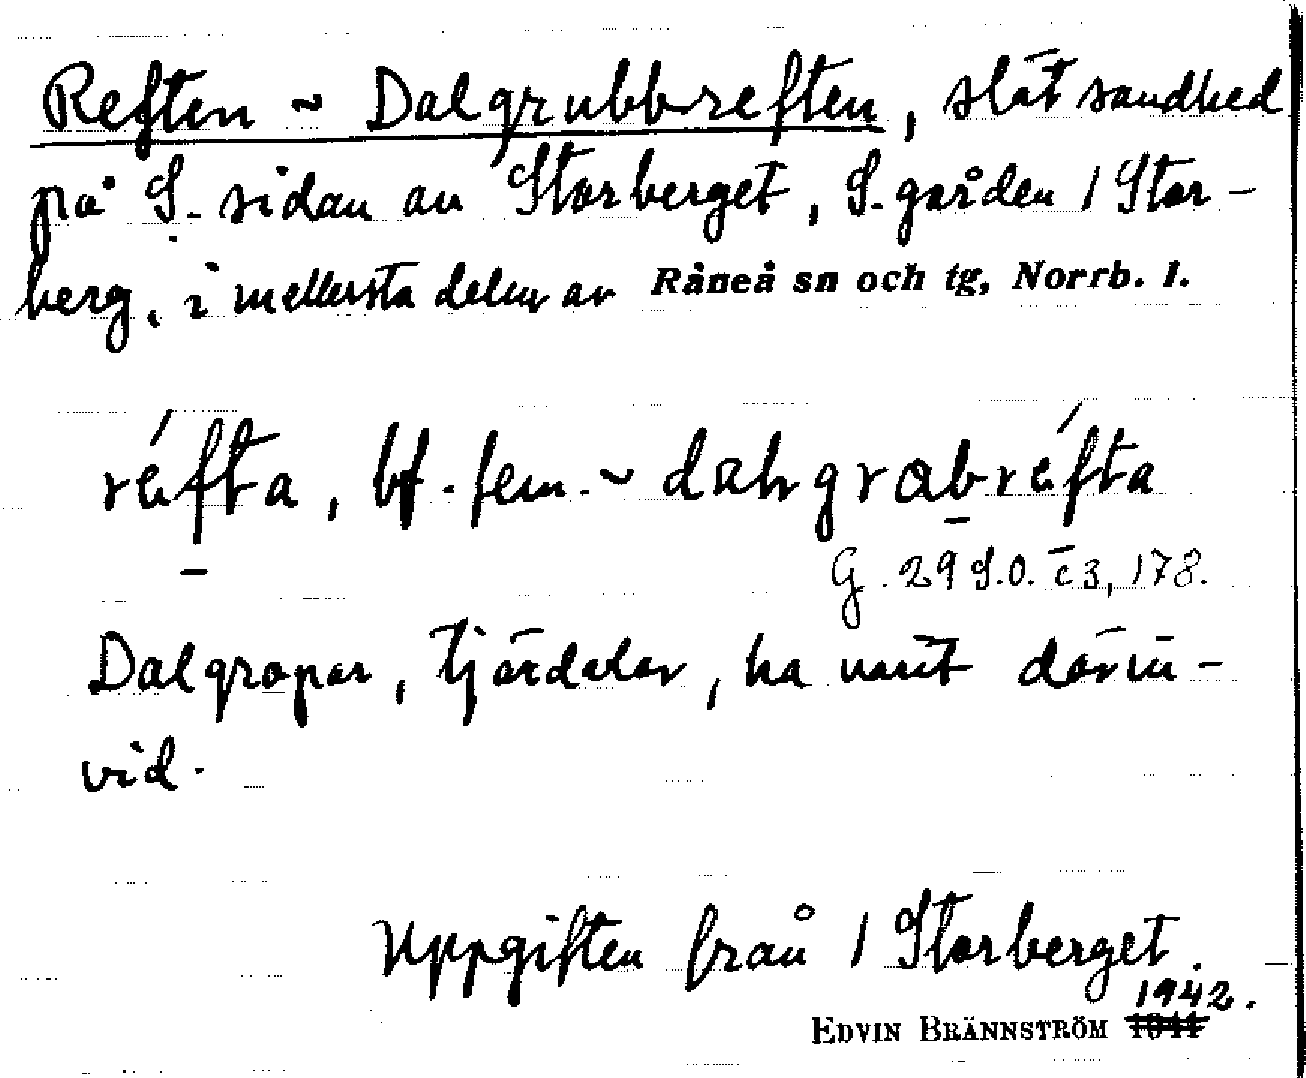 Reften ~ Dalgrubbreften, slät sandhed
på S. sidan av Storberget, S. gården 1 Stor-
berg, i mellersta delen av Råneå sn och tg, Norrb. l.
réfta, bf. fem. ~ dahgrabréfta
G. 29 S.O. c̄ 3, 178.
Dalgropar, tjärdalar, ha varit därin-
vid.
Uppgiften från 1 Storberget.
1942.
EDVIN BRÄNNSTRÖM 1941